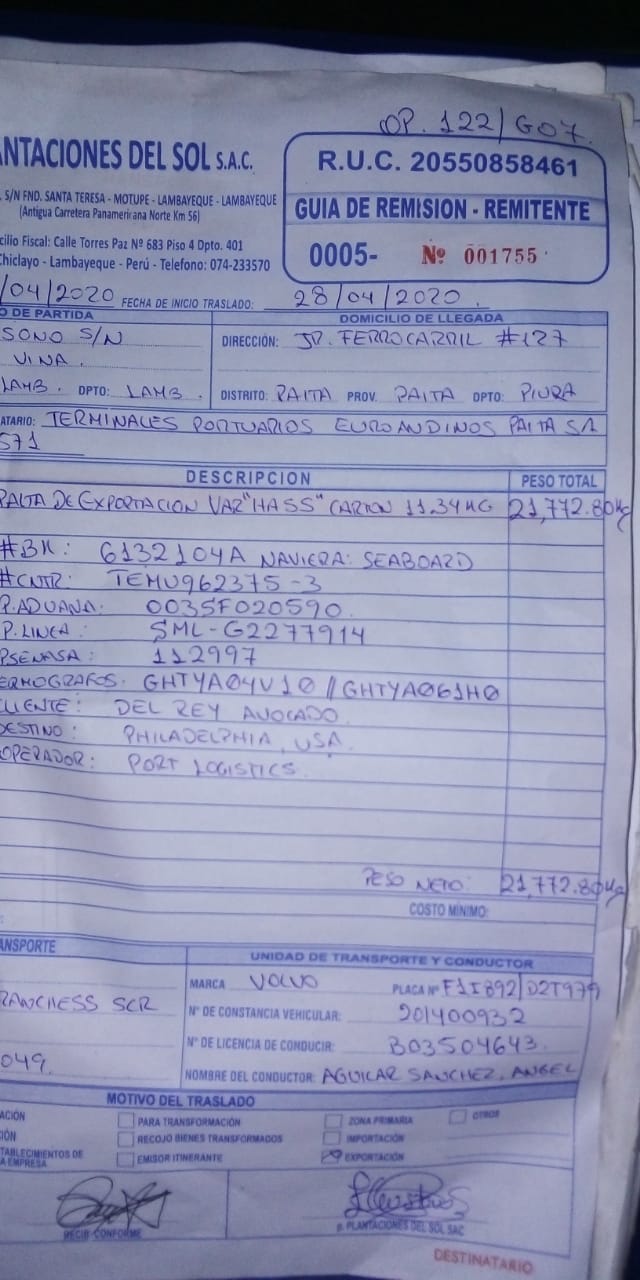 OP. 122/G07.
NTACIONES DEL SOL S.A.C.
R.U.C. 20550858461
S/N FND. SANTA TERESA - MOTUPE - LAMBAYEQUE - LAMBAYEQUE
(Antigua Carretera Panamericana Norte Km 56)
GUIA DE REMISION - REMITENTE
cilio Fiscal: Calle Torres Paz Nº 683 Piso 4 Dpto. 401
hiclayo - Lambayeque - Perú - Telefono: 074-233570
0005- Nº 001755
/04/2020 FECHA DE INICIO TRASLADO: 28/04/2020.
O DE PARTIDA DOMICILIO DE LLEGADA
SONO S/N DIRECCIÓN: JR. FERROCARRIL #127
VINA.
LAMB. DPTO: LAMB. DISTRITO: PAITA PROV. PAITA DPTO: PIURA
ATARIO: TERMINALES PORTUARIOS EUROANDINOS PAITA SA
571
DESCRIPCION PESO TOTAL
PALTA DE EXPORTACION VAR "HASS" CARTON 11.34 KG 21,772.80Kg
#BK: 6132104A NAVIERA: SEABOARD
#CNTR: TEMU962375-3
P.ADUANA: 0035F020590
P.LINEA: SML-G2277914
PSENASA: 112997
ERMOGRAFOS. GHTYA04V10 // GHTYA061H0
CLIENTE: DEL REY AVOCADO
DESTINO: PHILADELPHIA, USA.
OPERADOR: PORT LOGISTICS.
PESO NETO: 21,772.80Kg
COSTO MÍNIMO:
ANSPORTE UNIDAD DE TRANSPORTE Y CONDUCTOR
MARCA VOLVO PLACA Nº F1I892/D2T979
RANCHESS SCR Nº DE CONSTANCIA VEHICULAR: 201400932
Nº DE LICENCIA DE CONDUCIR: B03504643.
049. NOMBRE DEL CONDUCTOR: AGUILAR SANCHEZ, ANGEL
MOTIVO DEL TRASLADO
ACIÓN PARA TRANSFORMACIÓN ZONA PRIMARIA OTROS
IÓN RECOJO BIENES TRANSFORMADOS IMPORTACIÓN
TABLECIMIENTOS DE
A EMPRESA EMISOR ITINERANTE EXPORTACIÓN
RECIBI CONFORME P. PLANTACIONES DEL SOL SAC
DESTINATARIO